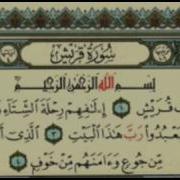 سُورَةُ قُرَيْشٍ
بِسْمِ اللَّهِ الرَّحْمَٰنِ الرَّحِيمِ
قُرَيْشٍ ١ إِۦلَٰفِهِمْ رِحْلَةَ الشِّتَآءِ
ـعْبُدُوا رَبَّ هَٰذَا الْبَيْتِ ٣ الَّذِي
مِّن جُوعٍ وَءَامَنَهُم مِّنْ خَوْفٍ ٤